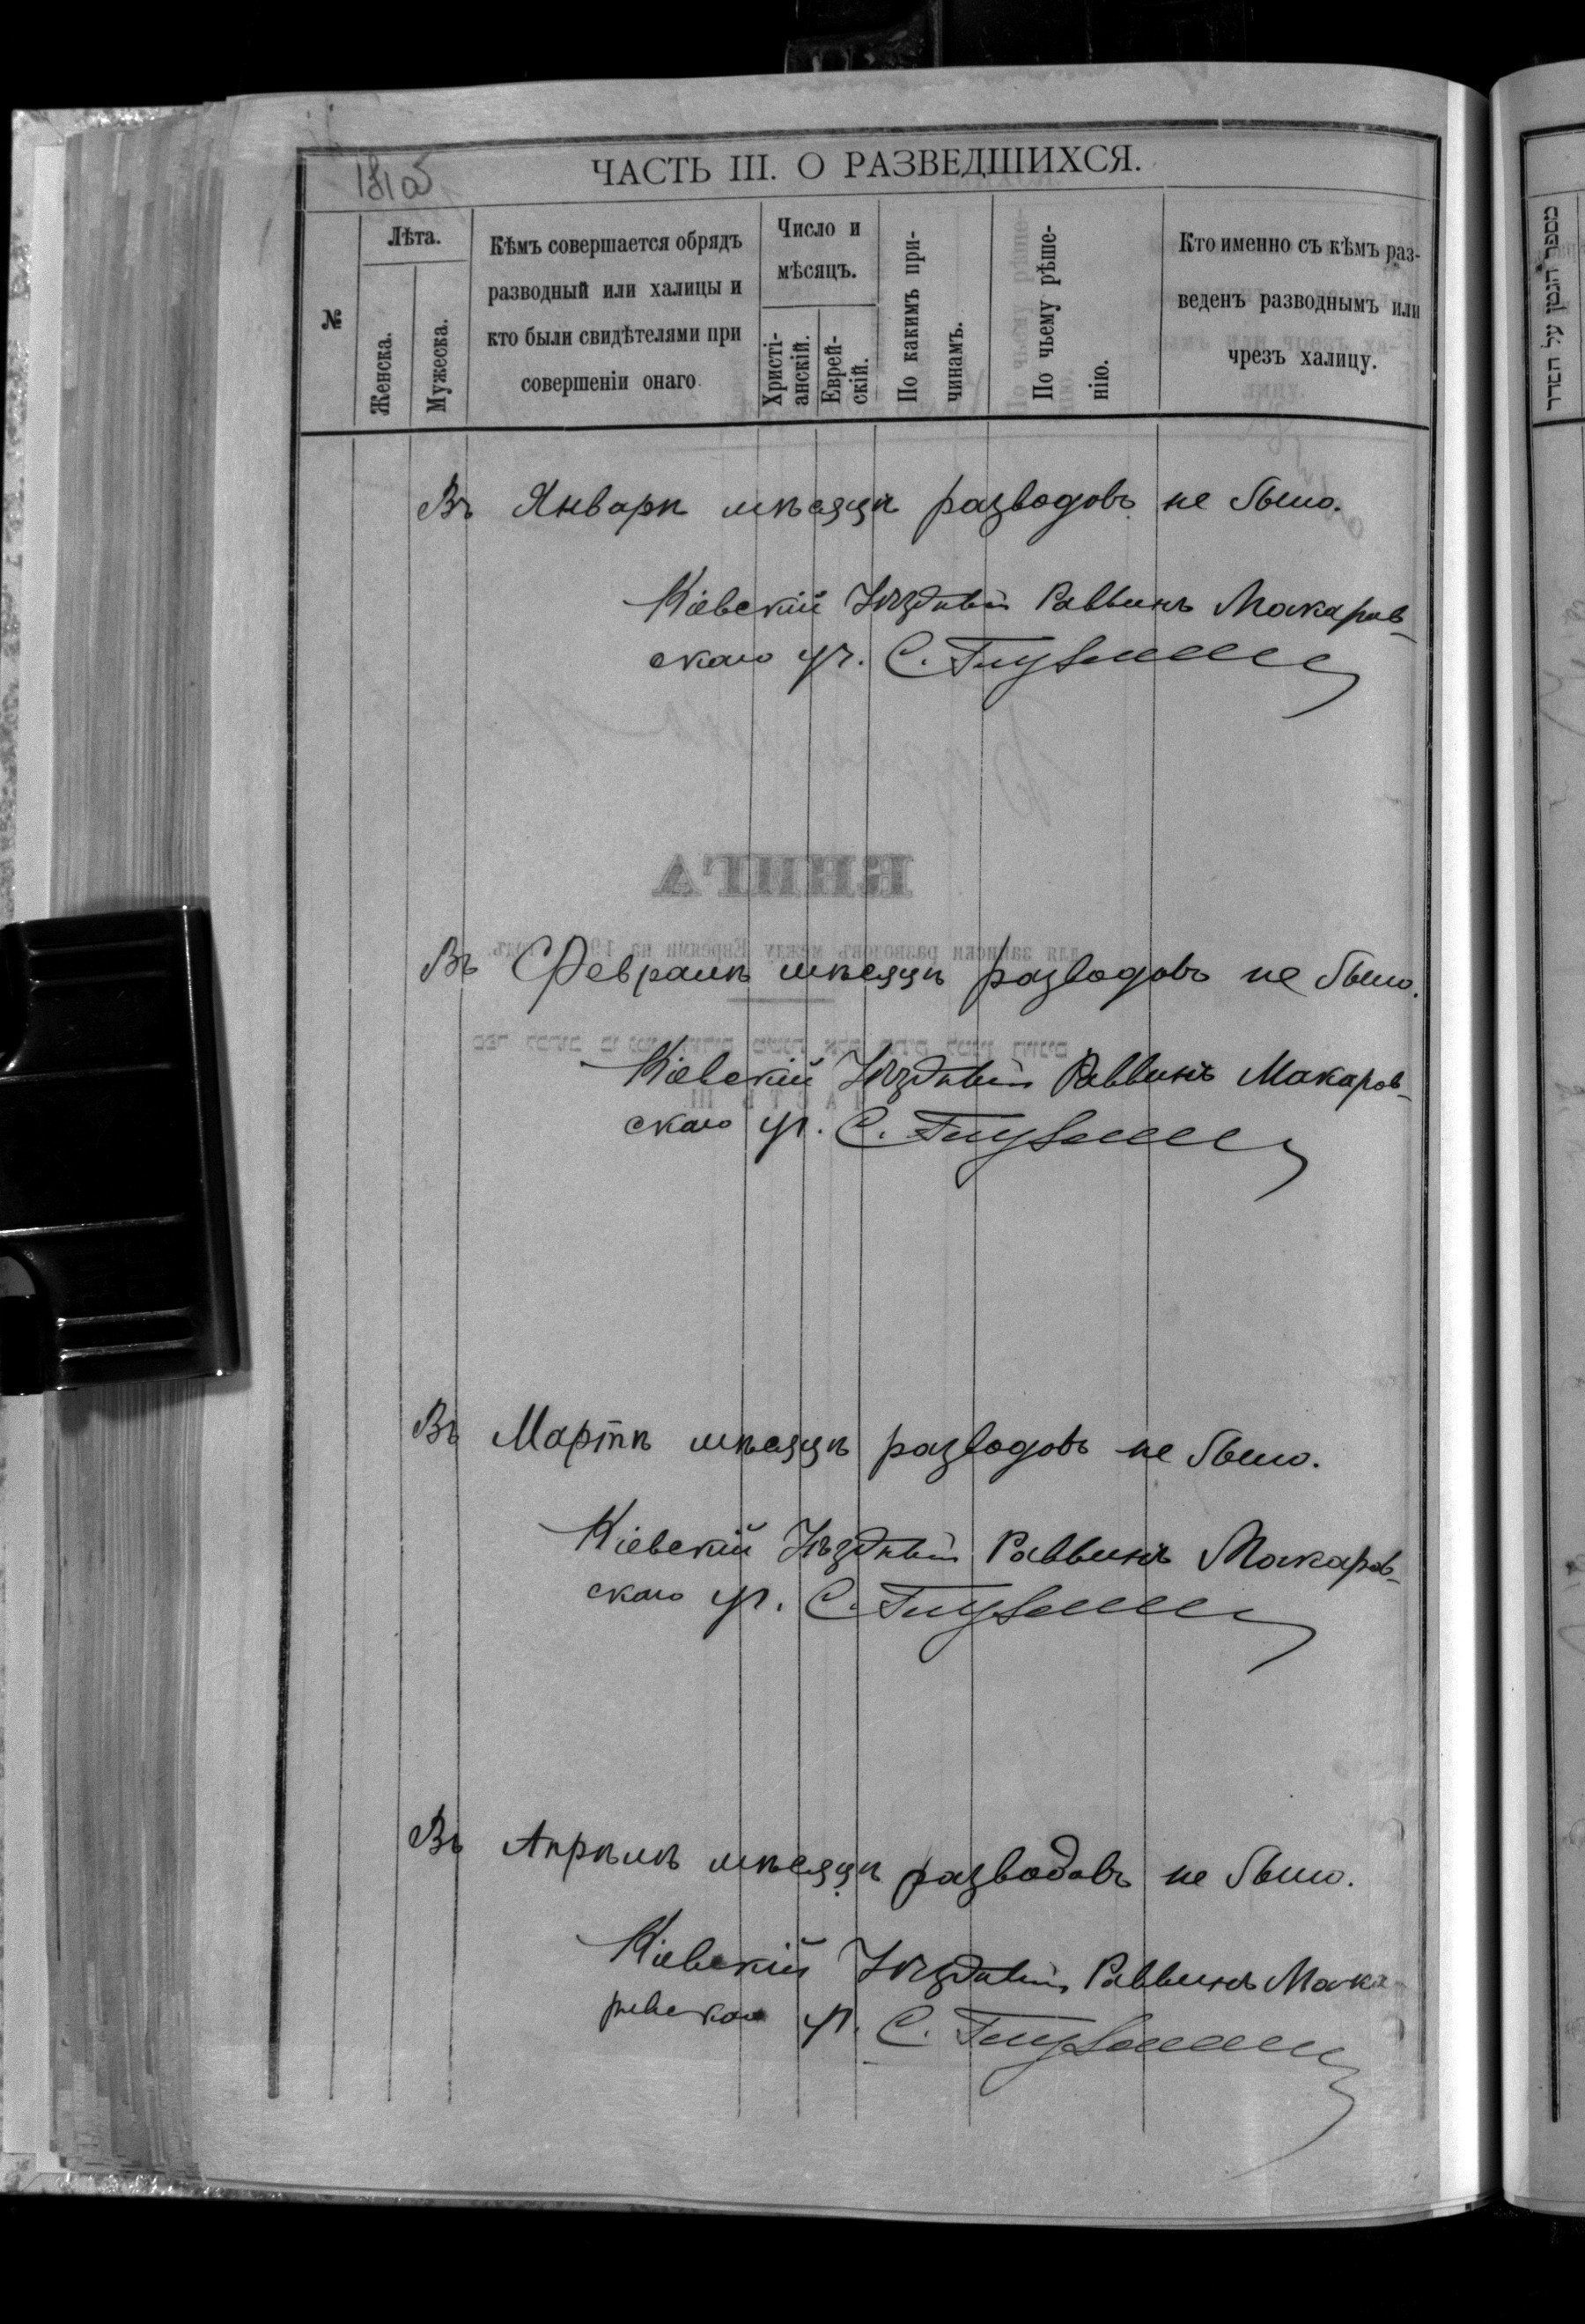 181об
ЧАСТЬ III. О РАЗВЕДШИХСЯ.
№
Лѣта.
Женска.
Мужеска.
Кѣмъ совершается обрядъ
разводный или халицы и
кто были свидѣтелями при
совершеніи онаго
Число и
мѣсяцъ.
Христі-
анскій.
Еврей-
скій.
По какимъ при-
чинамъ.
По чьему рѣше-
нію.
Кто именно съ кѣмъ раз-
веденъ разводнымъ или
чрезъ халицу.
Въ Январѣ мѣсяцѣ разводовъ не было.
Кіевскій Уѣздный Раввинъ Макаров-
скаго уч. С.
КНИГА
для записки разводовъ между Евреями на 19
Въ Февралѣ мѣсяцѣ разводовъ не было.
Кіевскій Уѣздный Раввинъ Макаров-
скаго уч. С.
ЧАСТЬ III
Въ Мартѣ мѣсяцѣ разводовъ не было.
Кіевскій Уѣздный Раввинъ Макаров-
скаго уч. С.
Въ Апрѣлѣ мѣсяцѣ разводовъ не было.
Кіевскій Уѣздный Раввинъ Мака
ровскаго уч. С.
מספר הגטן על הסדר